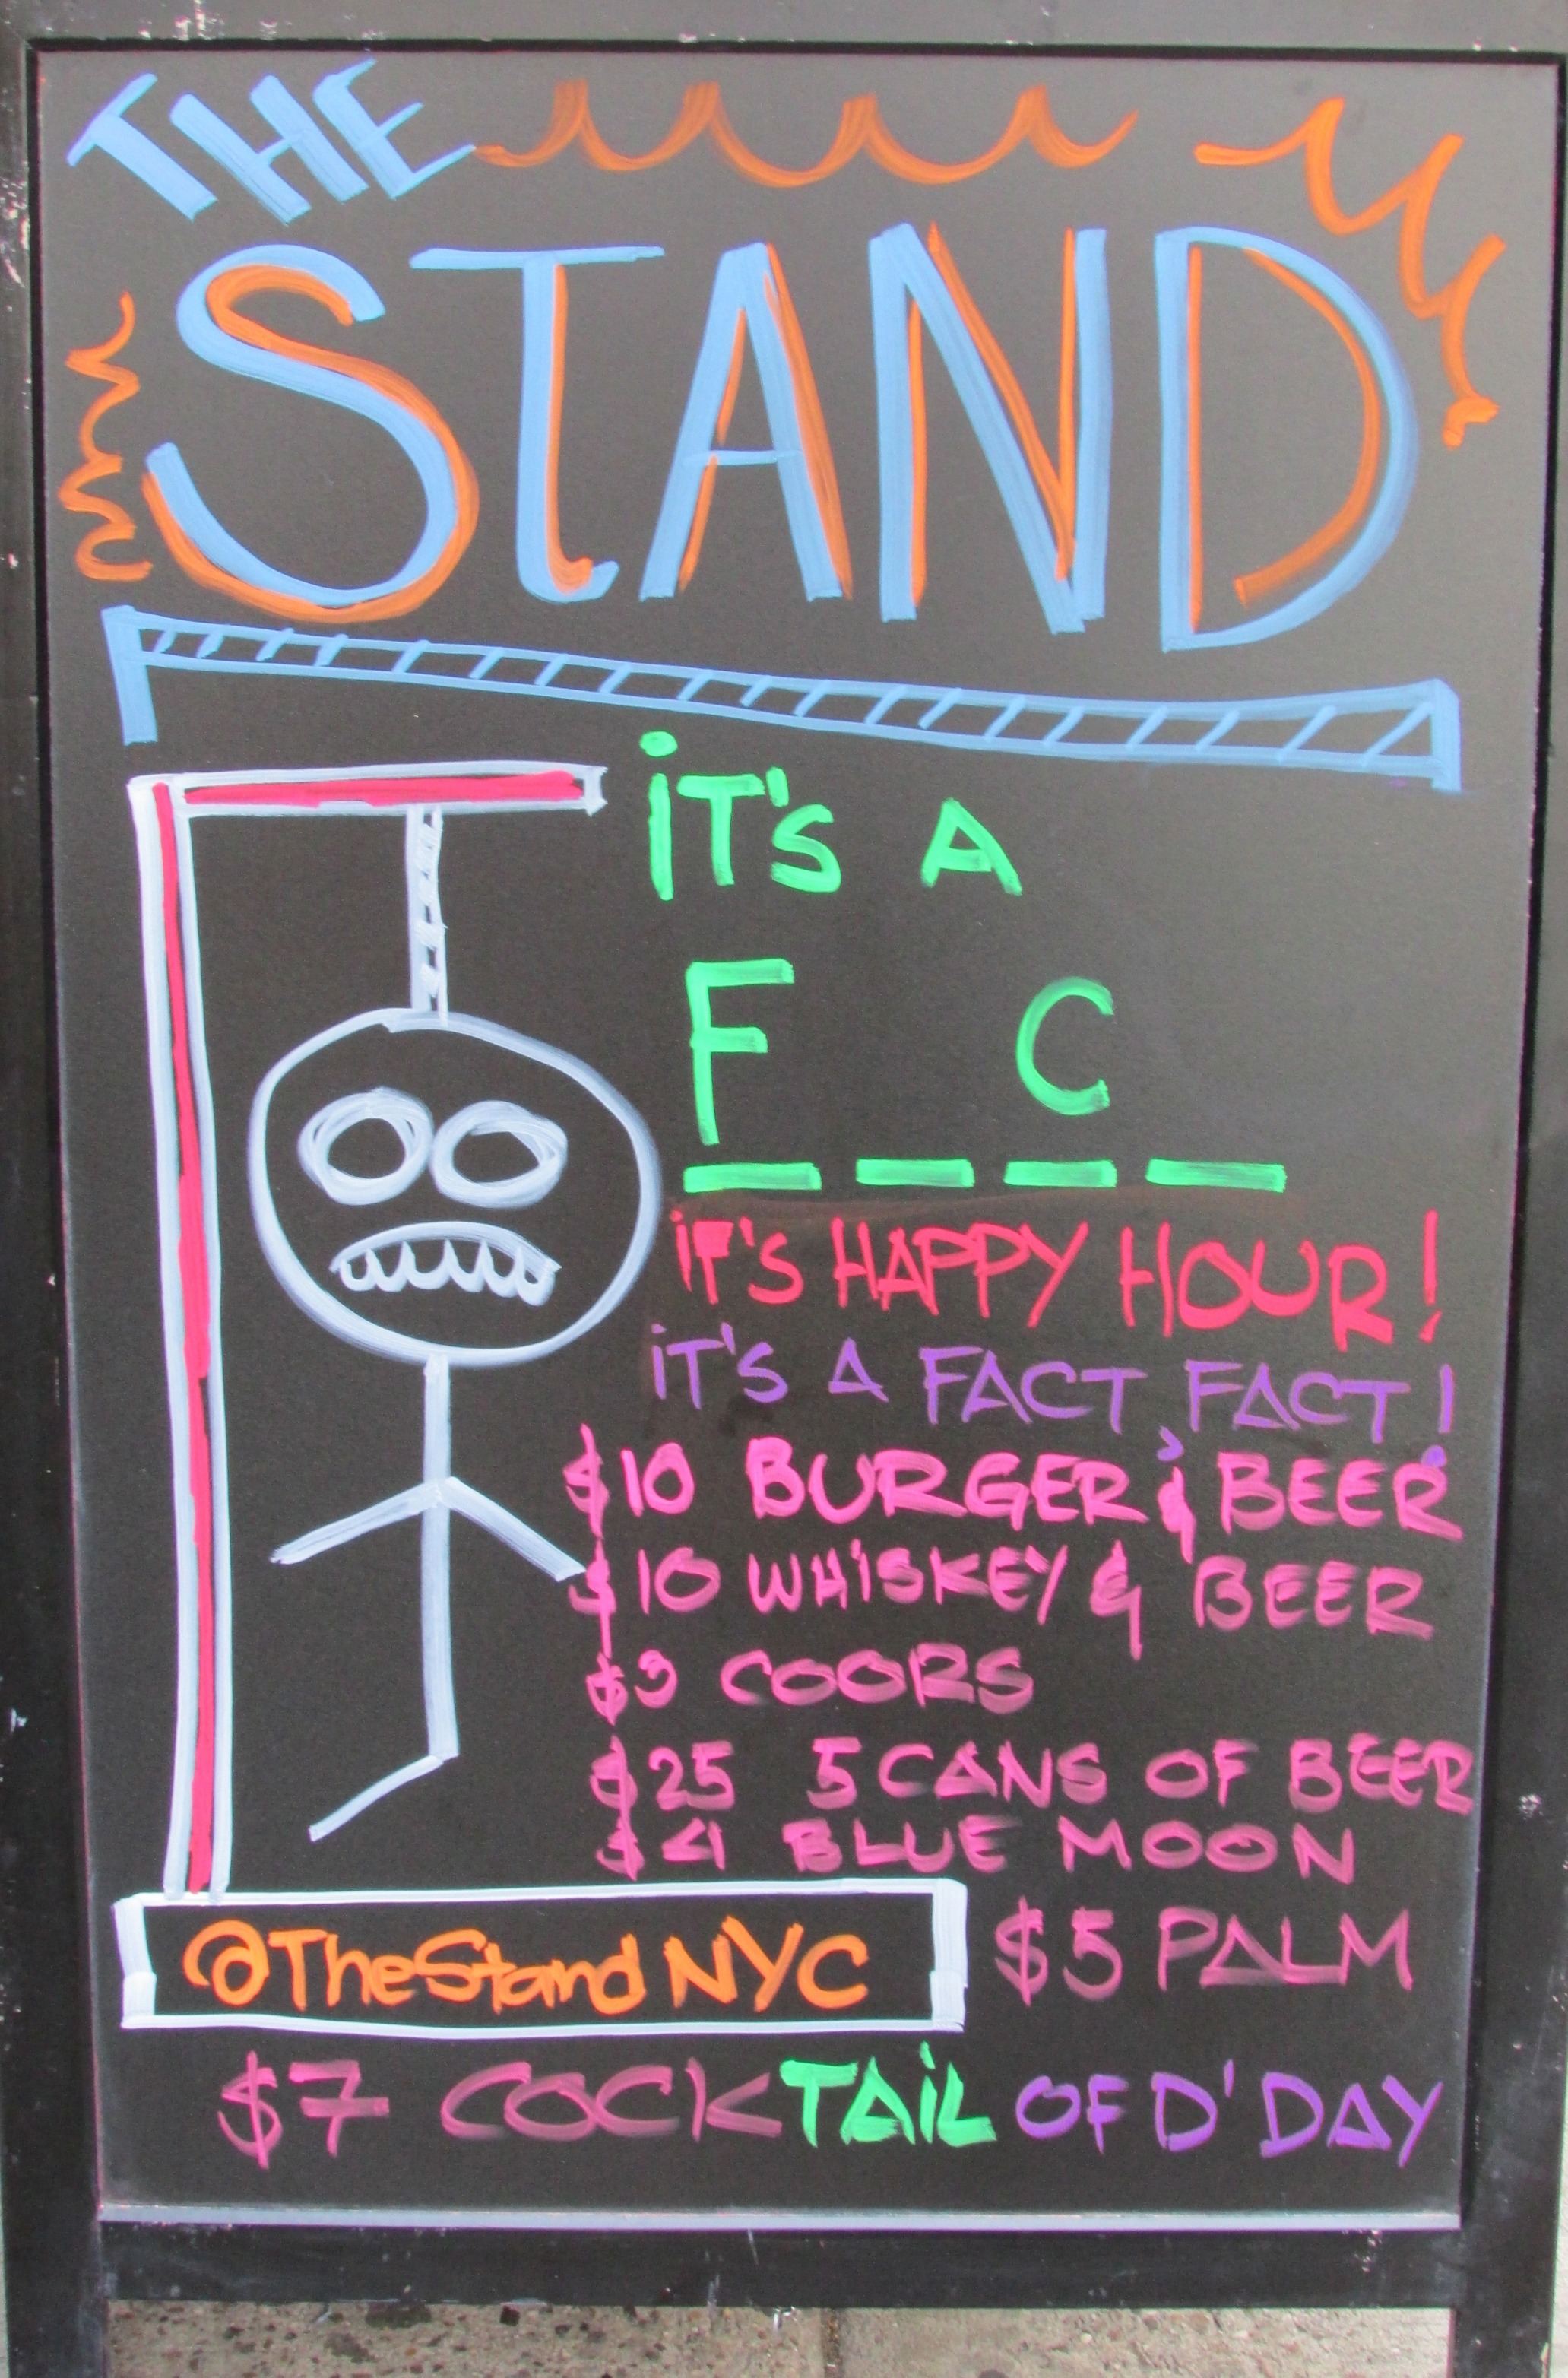 THE
STAND
iT'S A
F _ C _
iT'S HAPPY HOUR!
iT'S A FACT, FACT!
$10 BURGER & BEER
$10 WHiSKEY & BEER
$3 COORS
$25 5 CANS OF BEER
$4 BLUE MOON
@TheStandNYC
$5 PALM
$7 COCKTAiL OF D'DAY